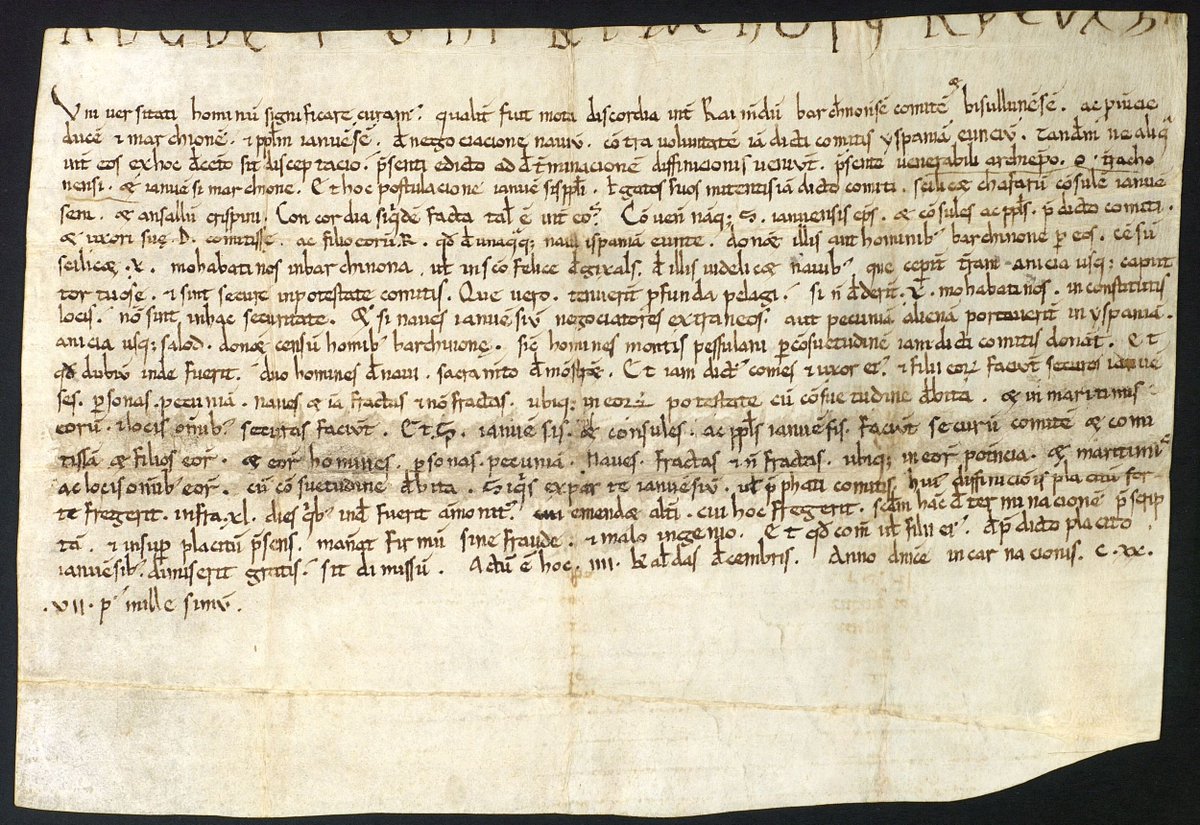 Vniversitati hominū significare curam᷒. qualit̄ fuit mota discordia int̄ Raimūdū barchinonēsē comitē & bisullunēsē. ac p̱uīcie
ducē & marchionē. & pp̄lm ianuēsē. de negociacione nauiū. cōtra voluntatē iā dicti comitis yspaniā eunciū. Tandē ne aliq̄
int̄ eos ex hoc dc̄eto sit disceptacio. p̄senti edicto ad dēt̄minacionē diffinicionis venuōt. p̄sente venerabili archiepō. o. t̄racho
nensi. & ianuēsi marchione. Et hoc postulacione ianuēsis pp̄li. legatos suos mittentis iā dicto comiti. scilic& chafarū cōsulē ianuē
sem. & ansallū crispinū. Concordia siq̄dē facta tal᷒ ē int̄ eo᷒. Cōven̄ naq̄; S. ianuensis ep̄s. & cōsules ac pp̄ls. p̄dicto comiti.
& uxori suę. D. comitisse. ac filio eorū. R. qd̄ de unaq̄q; naui ispaniā eunte. don& illis aut hominib᷒ barchinone p̱ eos. cēsū
scilic& .x. mohabatinos in barchinona. ul̄ in sc̄o felice de gixals. de illis uidelic& nauib᷒ que cep̄int t̄ram a nicia usq; caput
tortuose. & sint secure in potestate comitis. Que vero. tenuerīt p̱funda pelagi. si n̄ dederīt .x. mohabatinos. in constitutis
locis. nō sint in hac securitate. & si naues ianuēsiū negociatores extraneos. aut pecuniā alienā portauerīt in yspaniā.
a nicia usq; salod. don& censū homīb᷒ barchinonę. sic̄ homines montis pessulani p̱ cōsuetudinē iam dicti comitis donāt. Et
qd̄ dubiū inde fuerit. duo homines de naui. sacramto demōstr&. Et iam dict᷒ comes & uxor ei᷒. & filii eoꝝ faciōt securos ianue
ses. p̱sonas. pecuniā. naues & iā fractas & nō fractas. ubiq; in eorū potestate cū cōsuetudine debita. & in maritimis
eorū. & locis omīb᷒ securas faciōt. Et S. ianuēsis. & consules. ac pp̄ls ianuēsis. faciōt securū comitē & comi
tissā & filios eoꝝ. & eoꝝ homines. p̱sonas. pecuniā. naues. fractas & n̄ fractas. ubiq; in eoꝝ potēncia. & maritimis
ac locis omīb᷒ eoꝝ. cū cōsuetudine debita. Si q̄s ex parte ianuēsiū. ul̄ p̄phati comitis. hui᷒ diffinicionis placitū for
te fregerit. infra .xl. dies q̄b᷒ inde fuerit āmonit᷒. emend& alt̄i. cui hoc fregerit. scd̄m hāc det̄minacionē p̄scrip
tā. & insup̱ placitū p̄sens. maneat firmū sine fraude. & malo ingenio. Et qd̄ com̄ ul̄ filii ei᷒. de p̄dicto placito
ianuēsib᷒ dimiserit gratis. sit dimissū. Actū ē hoc. IIII. kaldas decembris. Anno dn̄ice incarnacionis. C. XX.
.VII. p᷒ millesimū.